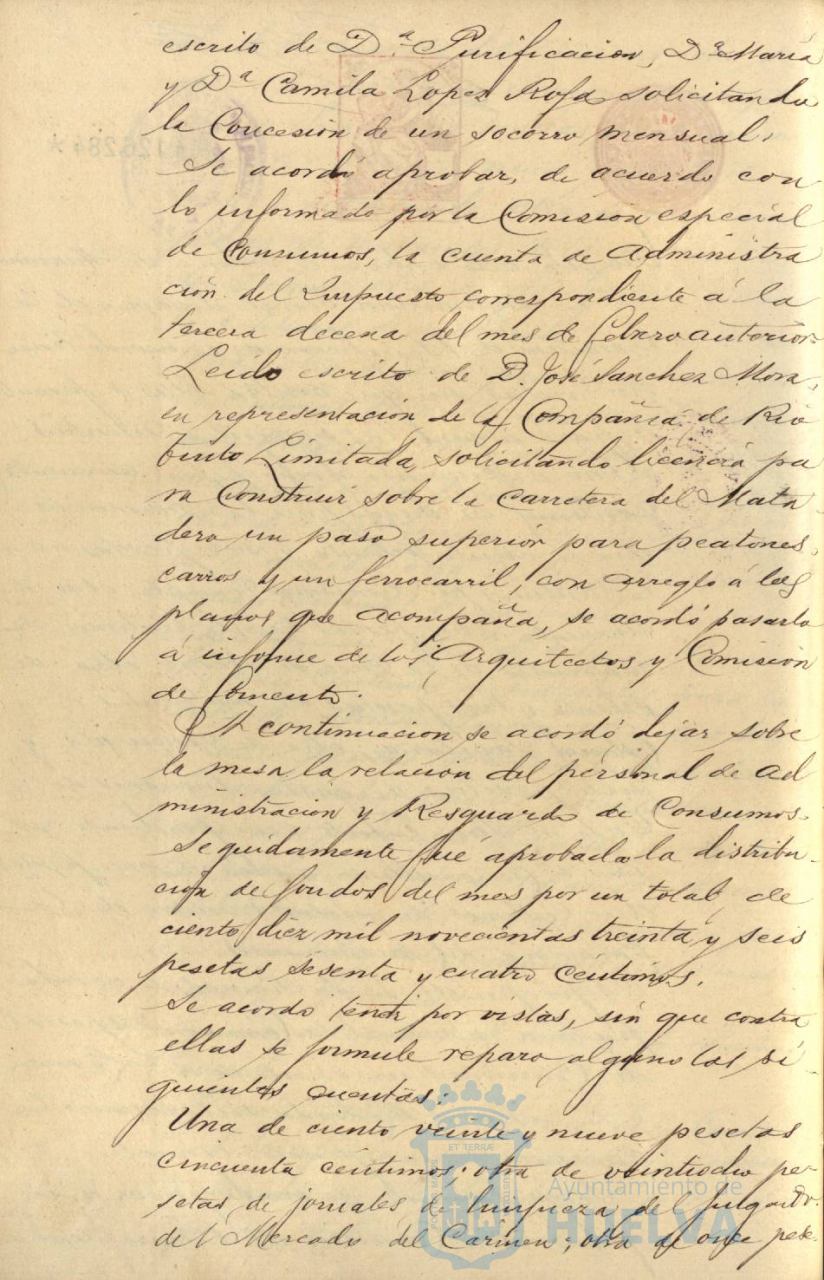 escrito de D.ª Purificacion, Dª María
y Dª Camila Lopez Rosa solicitando
la Concesión de un socorro mensual.
Se acordó aprobar, de acuerdo con
lo informado por la Comision especial
de Consumos, la cuenta de Administra
ción del Impuesto correspondiente á la
tercera decena del mes de febrero anterior.
Leido escrito de D. José Sanchez Mora,
en representación de la Compañia de Rio
tinto Limitada, solicitando licencia pa
ra Construir sobre la Carretera del Mata
dero un paso superior para peatones,
carros y un ferrocarril, con arreglo á los
planos que acompaña, se acordó pasarlo
á informe de los Arquitectos y Comisión
de fomento.
A continuacion se acordó dejar sobre
la mesa la relación del personal de Ad
ministracion y Resguardo de Consumos.
Seguidamente fué aprobada la distribu-
ción de fondos del mes por un total de
ciento diez mil novecientas treinta y seis
pesetas sesenta y cuatro céntimos.
Se acordo tener por vistas, sin que contra
ellas se formule reparo alguno las si-
guientes cuentas:
Una de ciento veinte y nueve pesetas
cincuenta céntimos; otra de veintiocho pe-
setas de jornales de limpieza del
del Mercado del Carmen; otra de once pese-
Ayuntamiento de
HUELVA